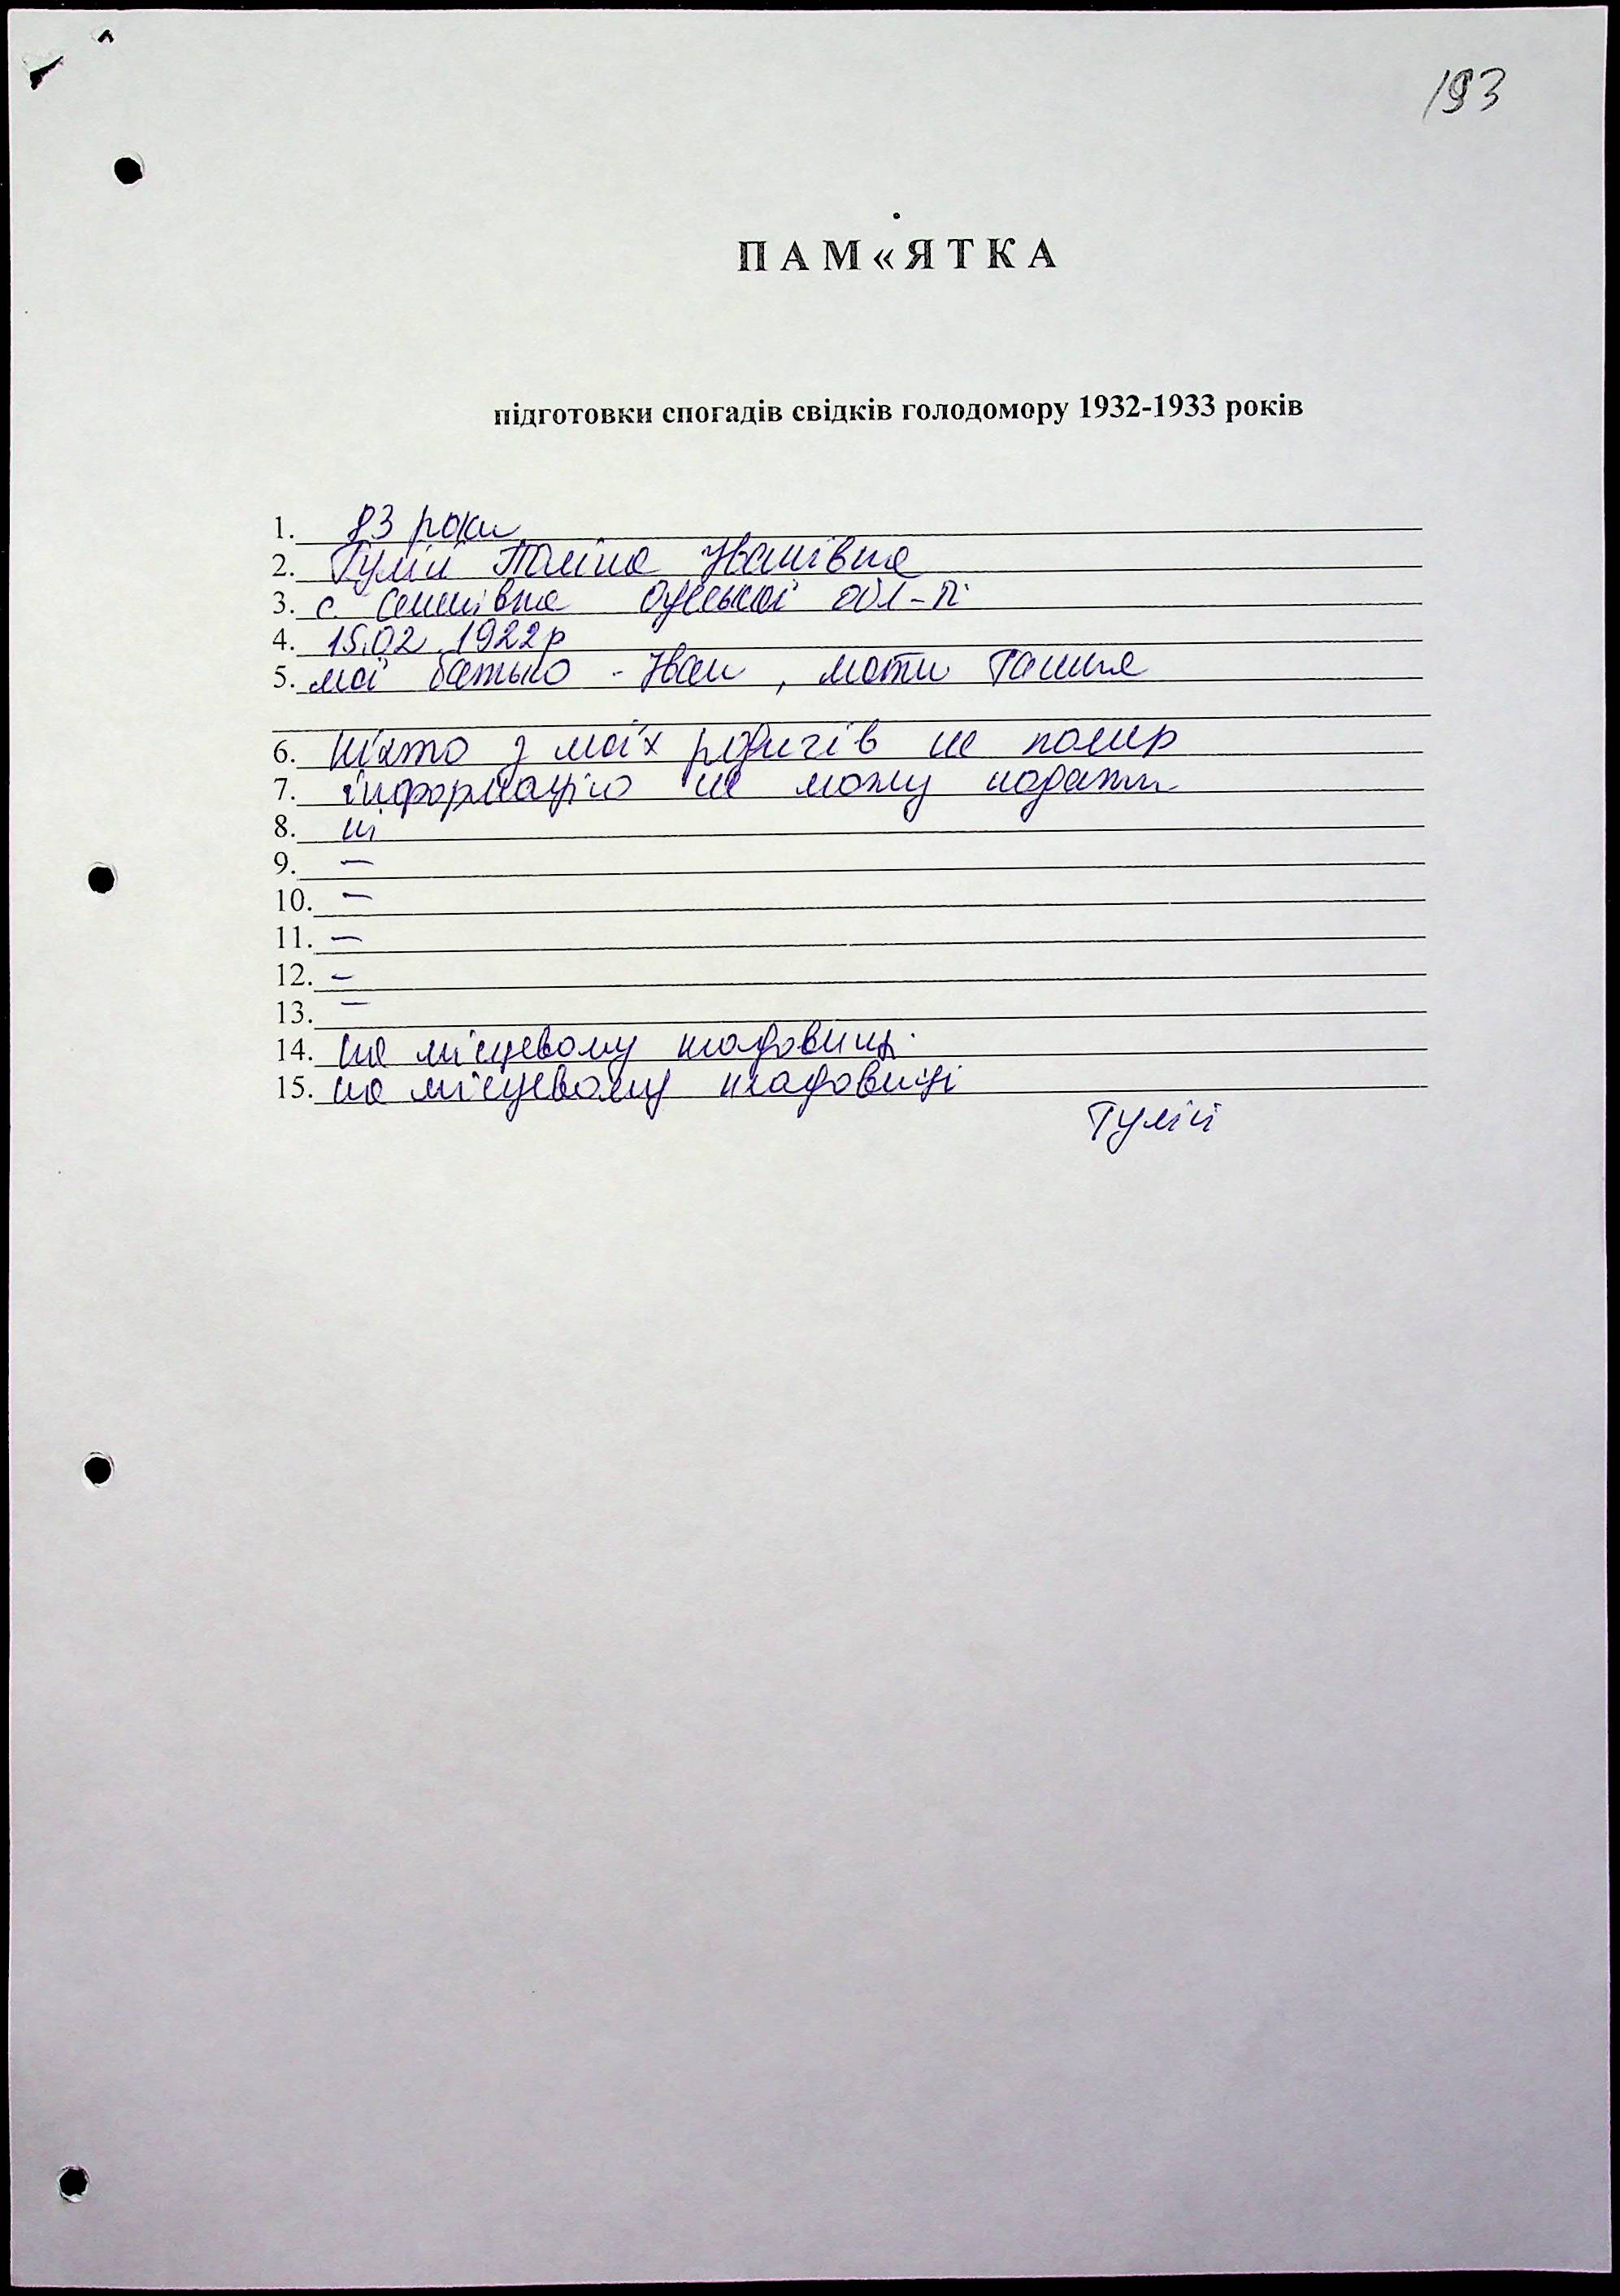 193
ПАМ«ЯТКА
підготовки спогадів свідків голодомору 1932-1933 років
1. 83 роки
2. Гулій Поліна Іванівна
3. с. Семенівка Одеської обл-ті
4. 15.02.1922р
5. мої батько - Іван, мати Ганна
6. ніхто з моїх родичів не помер
7. інформацію не можу надати
8. ні
9. —
10. —
11. —
12. —
13. —
14. на місцевому кладовищі.
15. на місцевому кладовищі
Гулій